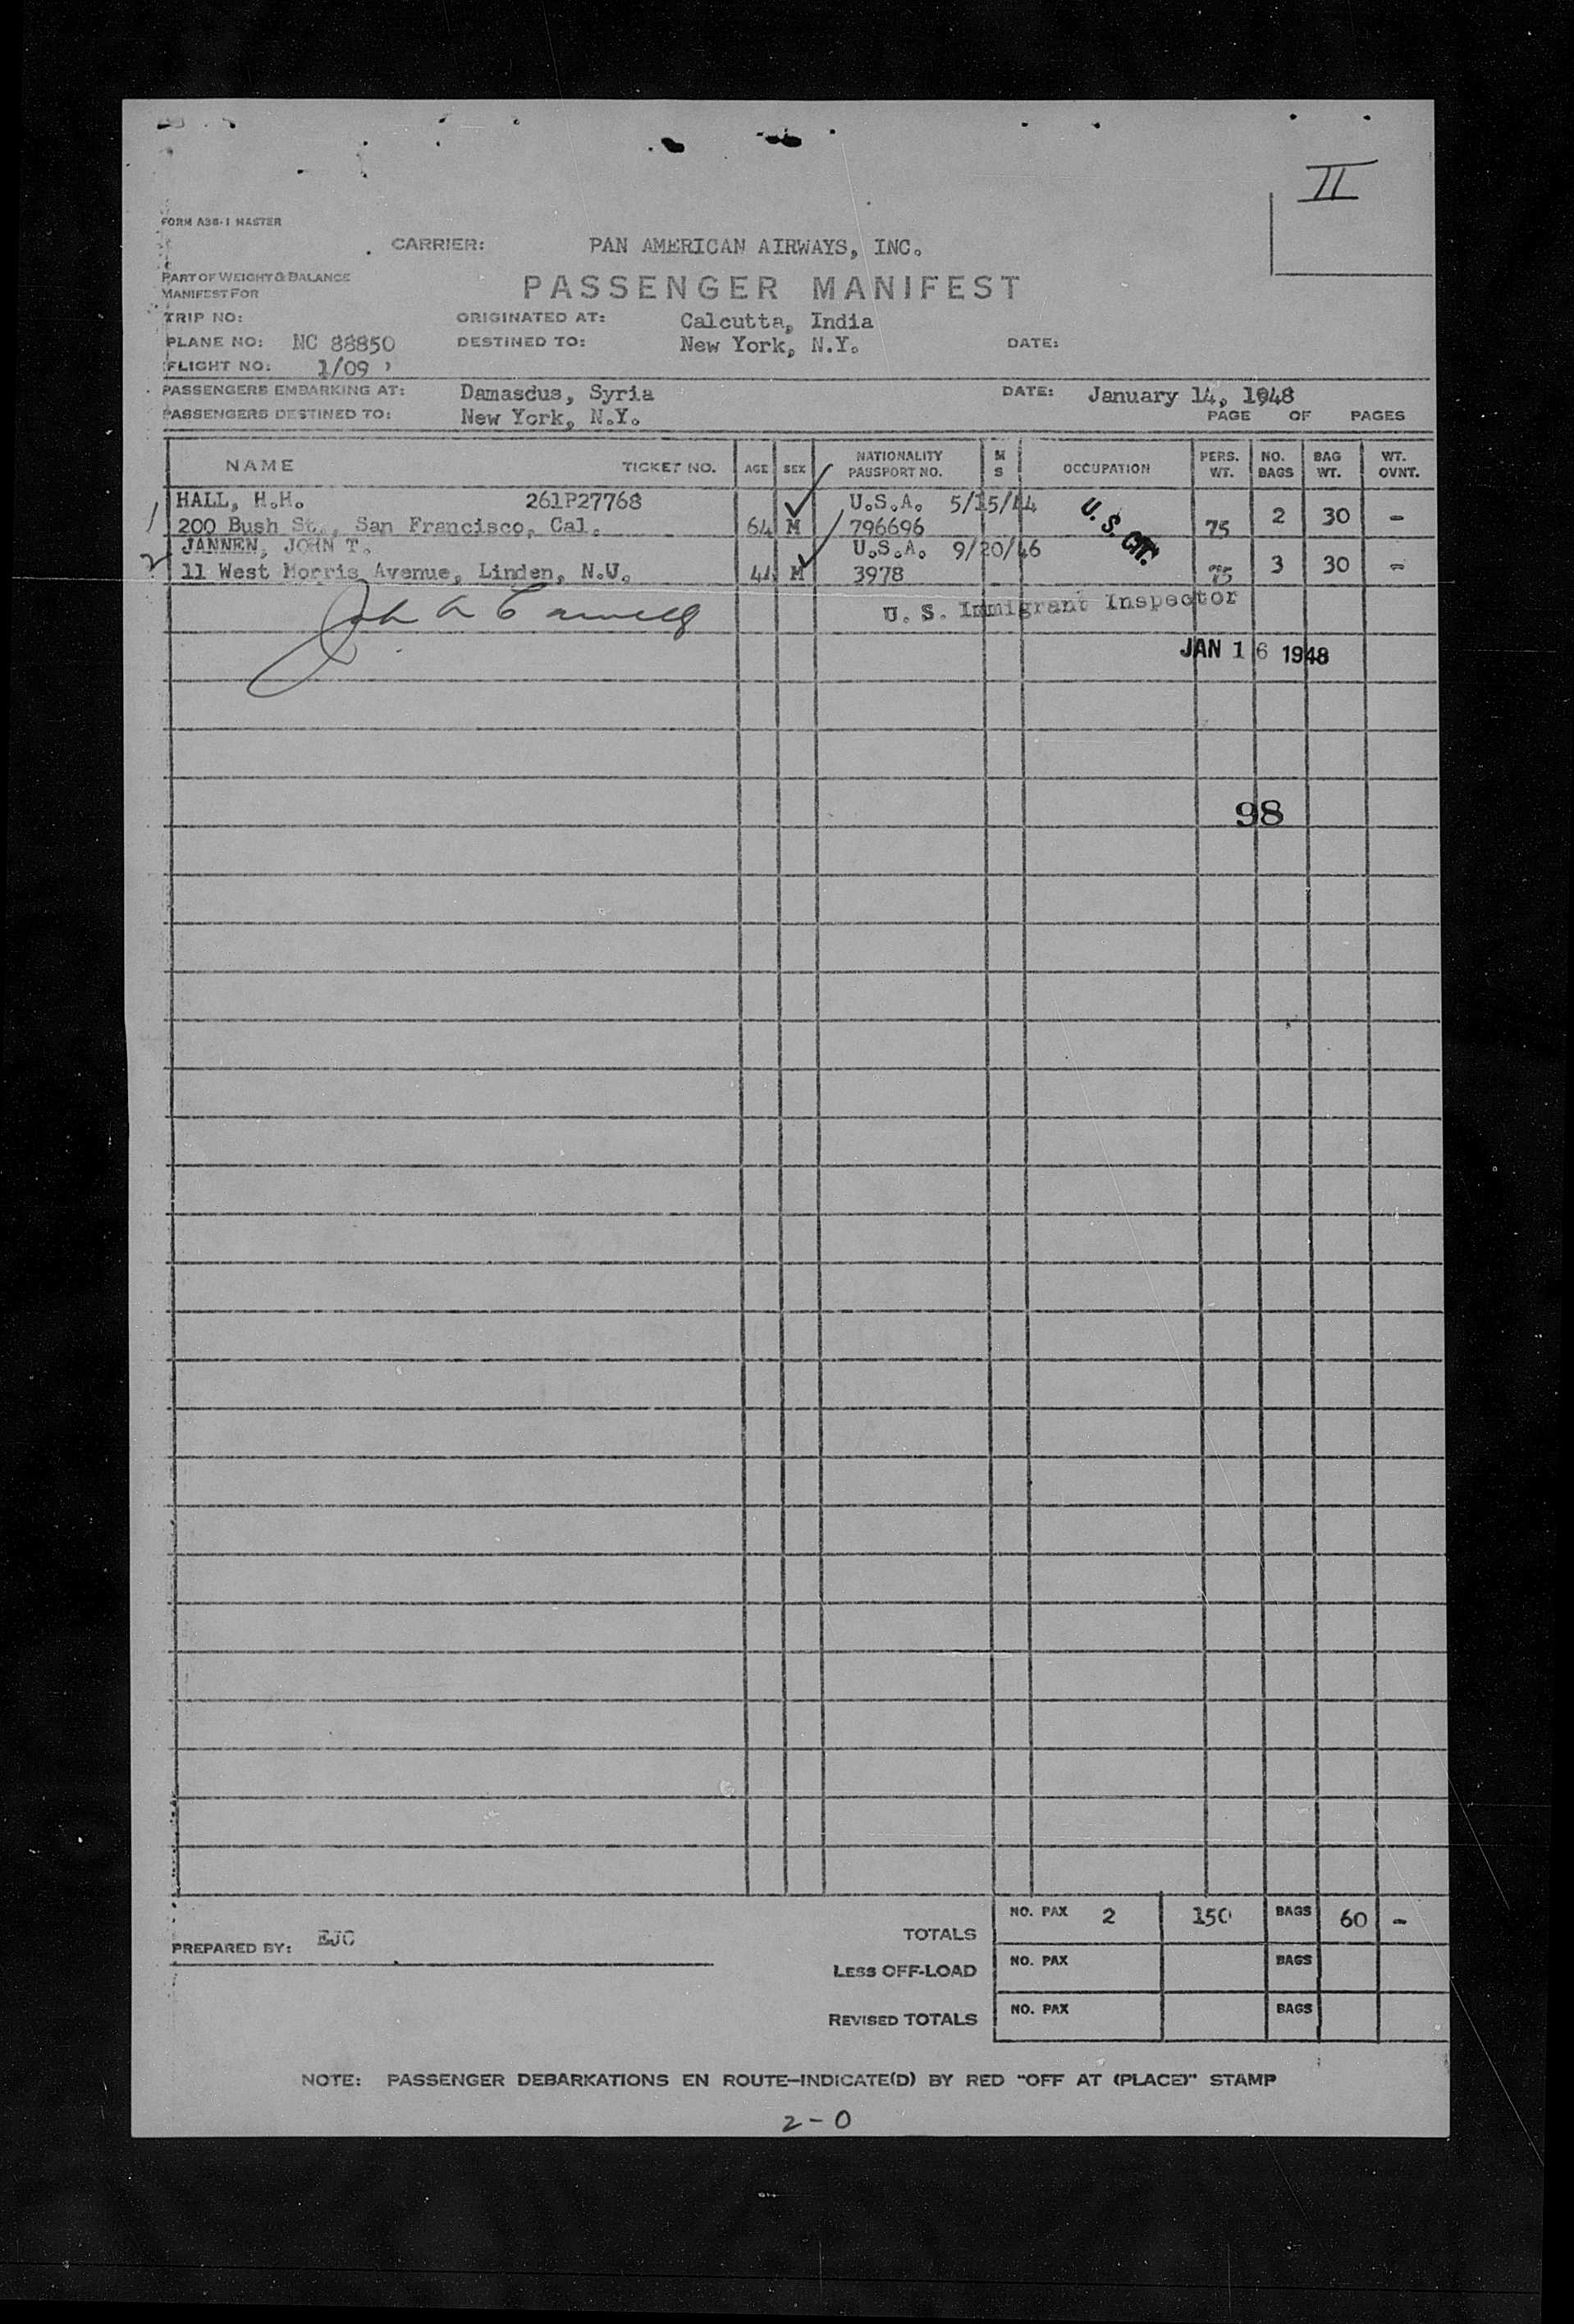 II
FORM A36-1 MASTER
CARRIER: PAN AMERICAN AIRWAYS, INC.
PART OF WEIGHT & BALANCE
MANIFEST FOR
PASSENGER MANIFEST
TRIP NO: ORIGINATED AT: Calcutta, India
PLANE NO: NC 88850 DESTINED TO: New York, N.Y. DATE:
FLIGHT NO: 1/09
PASSENGERS EMBARKING AT: Damascus, Syria DATE: January 14, 1948
PASSENGERS DESTINED TO: New York, N.Y. PAGE OF PAGES
NAME TICKET NO. AGE SEX NATIONALITY PASSPORT NO. M S OCCUPATION PERS. WT. NO. BAGS BAG WT. WT. OVNT.
1 HALL, H.H. 261P27768 U.S.A. 5/15/44
200 Bush St., San Francisco, Cal. 64 M 796696 U.S. CIT. 75 2 30 -
2 JANNEN, JOHN T. U.S.A. 9/20/46
11 West Morris Avenue, Linden, N.J. 44 M 3978 75 3 30 -
John A
U. S. Immigrant Inspector
JAN 16 1948
98
TOTALS NO. PAX 2 150 BAGS 60 -
PREPARED BY: EJC
LESS OFF-LOAD NO. PAX BAGS
REVISED TOTALS NO. PAX BAGS
NOTE: PASSENGER DEBARKATIONS EN ROUTE—INDICATE(D) BY RED "OFF AT (PLACE)" STAMP
2-0